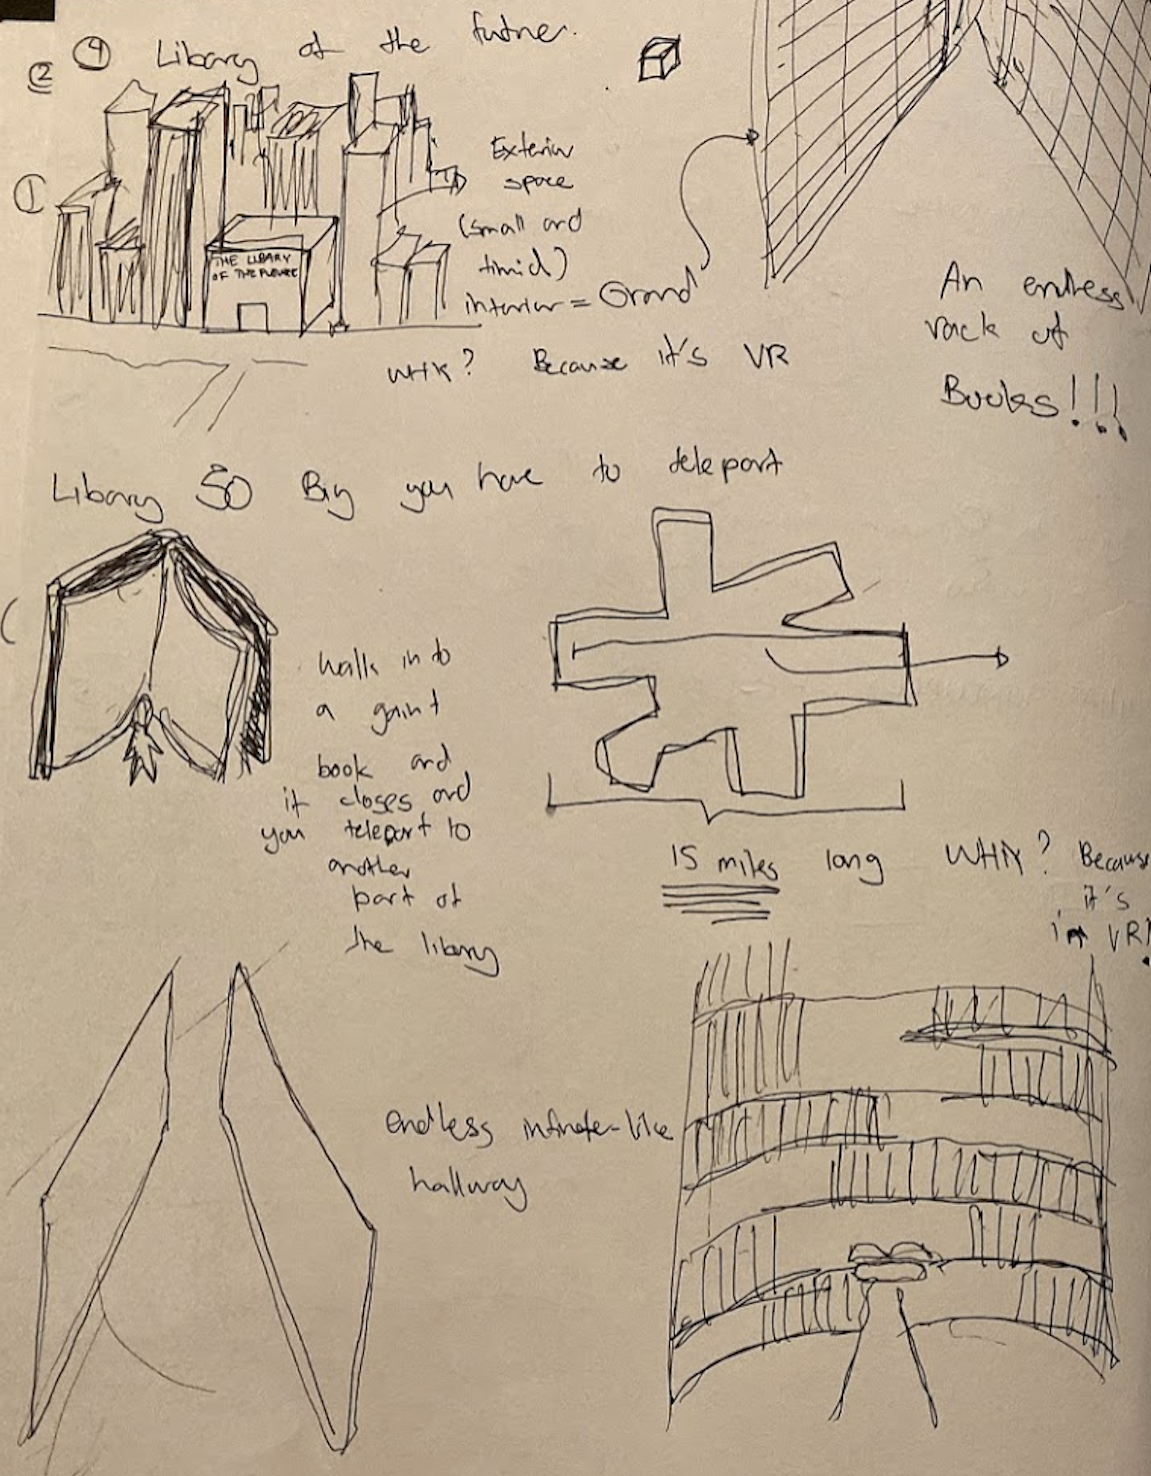 ② ④ Library of the future.
①
THE LIBRARY
OF THE FUTURE
Exterior
space
(small and
timid)
interior = Grand
WHY? Because it's VR
An endless
rack of
Books!!!
Library SO Big you have to teleport
walk into
a gaint
book and
it closes and
you teleport to
another
part of
the library
15 miles long WHY? Because
it's
in VR!
endless infinite-like
hallway